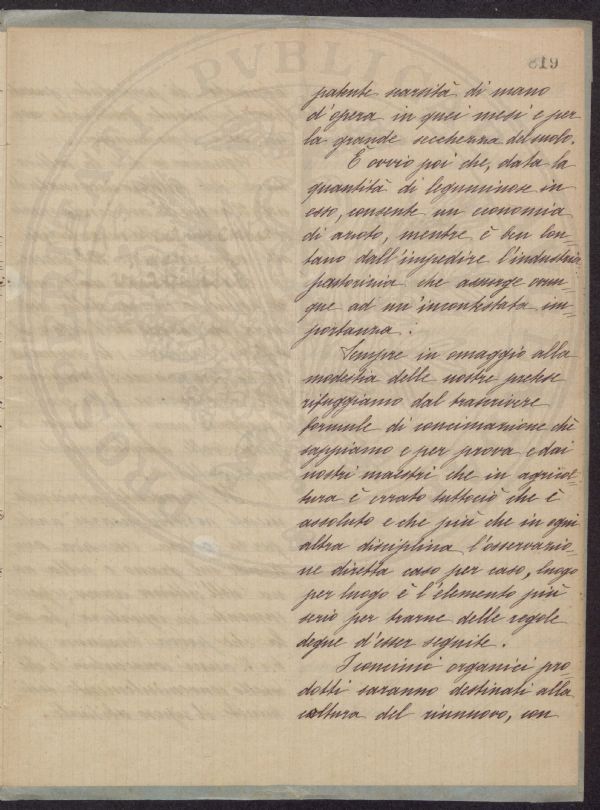 819
patente scarsità di mano
d'opera in quei mesi e per
la grande secchezza del suolo.
È ovvio poi che, data la
quantità di leguminose in
esso, consente un economia
di azoto, mentre è ben lon-
tano dall'impedire l'industria
pastorizia che assurge ovun-
que ad un'incontestata im-
portanza.
Sempre in omaggio alla
modestia delle nostre pretese
rifuggiamo dal trascrivere
formule di concimazione chè
sappiamo e per prova e dai
nostri maestri che in agricol-
tura è errato tuttociò che è
assoluto e che più che in ogni
altra disciplina l'osservazio-
ne diretta caso per caso, luogo
per luogo è l'elemento più
serio per trarne delle regole
degne d'esser seguite.
I concimi organici pro-
dotti saranno destinati alla
coltura del rinnovo, con